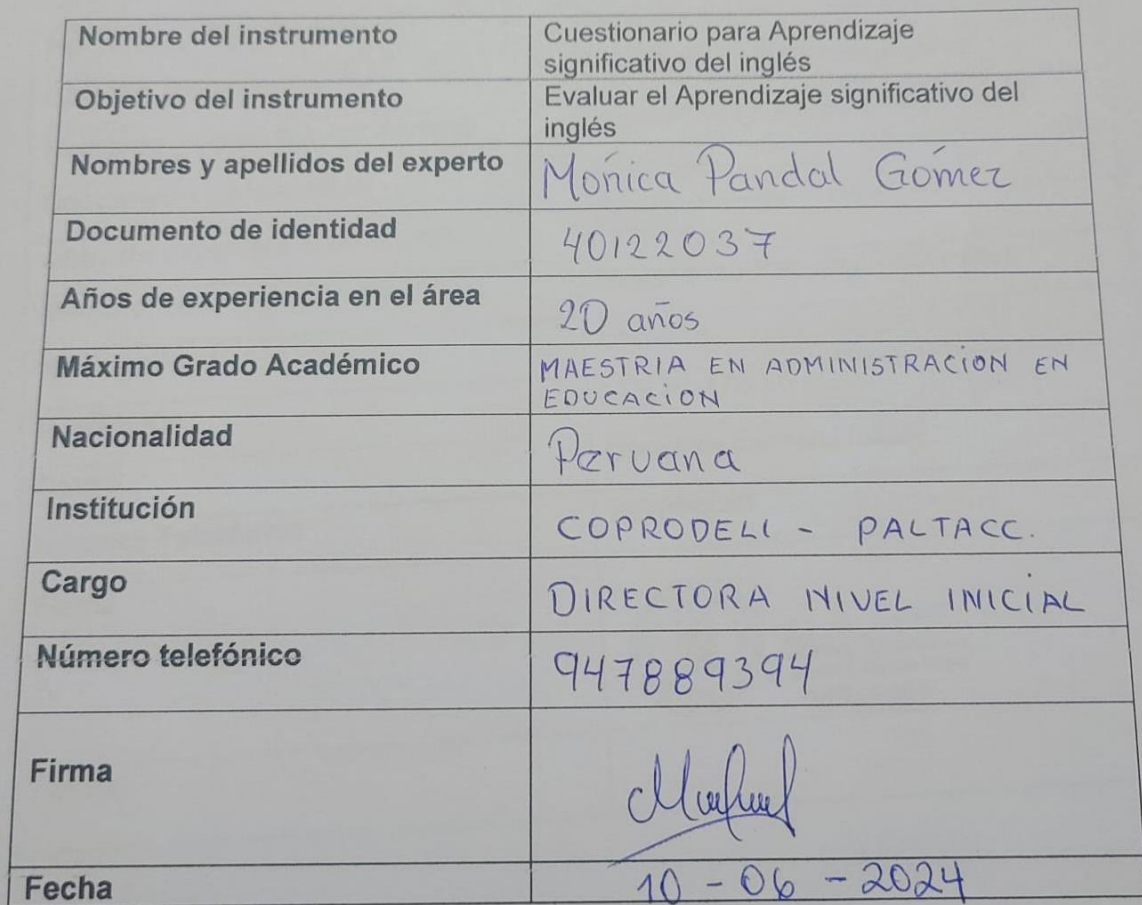 Nombre del instrumento
Cuestionario para Aprendizaje
significativo del inglés
Objetivo del instrumento
Evaluar el Aprendizaje significativo del
inglés
Nombres y apellidos del experto
Mónica Pandal Gómez
Documento de identidad
40122037
Años de experiencia en el área
20 años
Máximo Grado Académico
MAESTRIA EN ADMINISTRACIÓN EN
EDUCACIÓN
Nacionalidad
Peruana
Institución
COPRODELI - PALTACC.
Cargo
DIRECTORA NIVEL INICIAL
Número telefónico
947889394
Firma
Fecha
10 - 06 - 2024